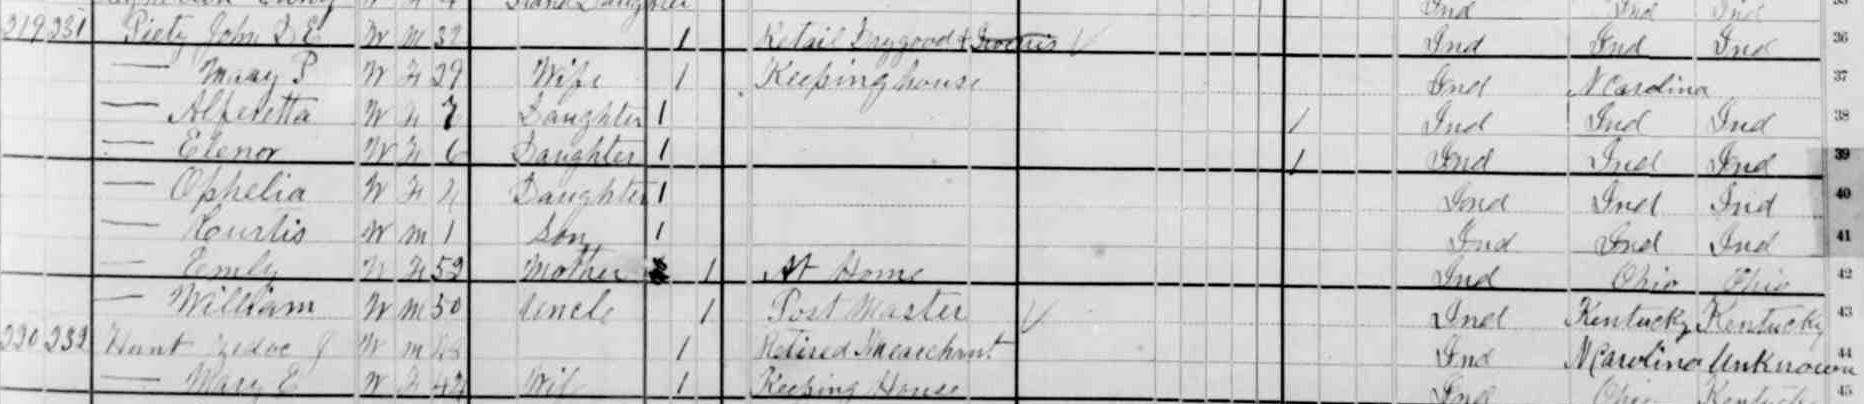 Grand Daughter Ind Ind Ind 35
219 231 Piety John D E W M 32 1 Retail Drygood & Groceries Ind Ind Ind 36
— Mary P W F 29 Wife 1 Keeping house Ind N Carolina 37
— Alferetta W F 7 Daughter 1 1 Ind Ind Ind 38
— Elenor W F 6 Daughter 1 1 Ind Ind Ind 39
— Ophelia W F 4 Daughter 1 Ind Ind Ind 40
— Curtis W M 1 Son 1 Ind Ind Ind 41
— Emily W F 52 Mother 1 At Home Ind Ohio Ohio 42
— William W M 50 Uncle 1 Post Master Ind Kentucky Kentucky 43
220 232 Hunt J W M 1 Retired Mearchant Ind N Carolina Unknown 44
— Mary E W F 42 Wife 1 Keeping House Ind Ohio Kentucky 45